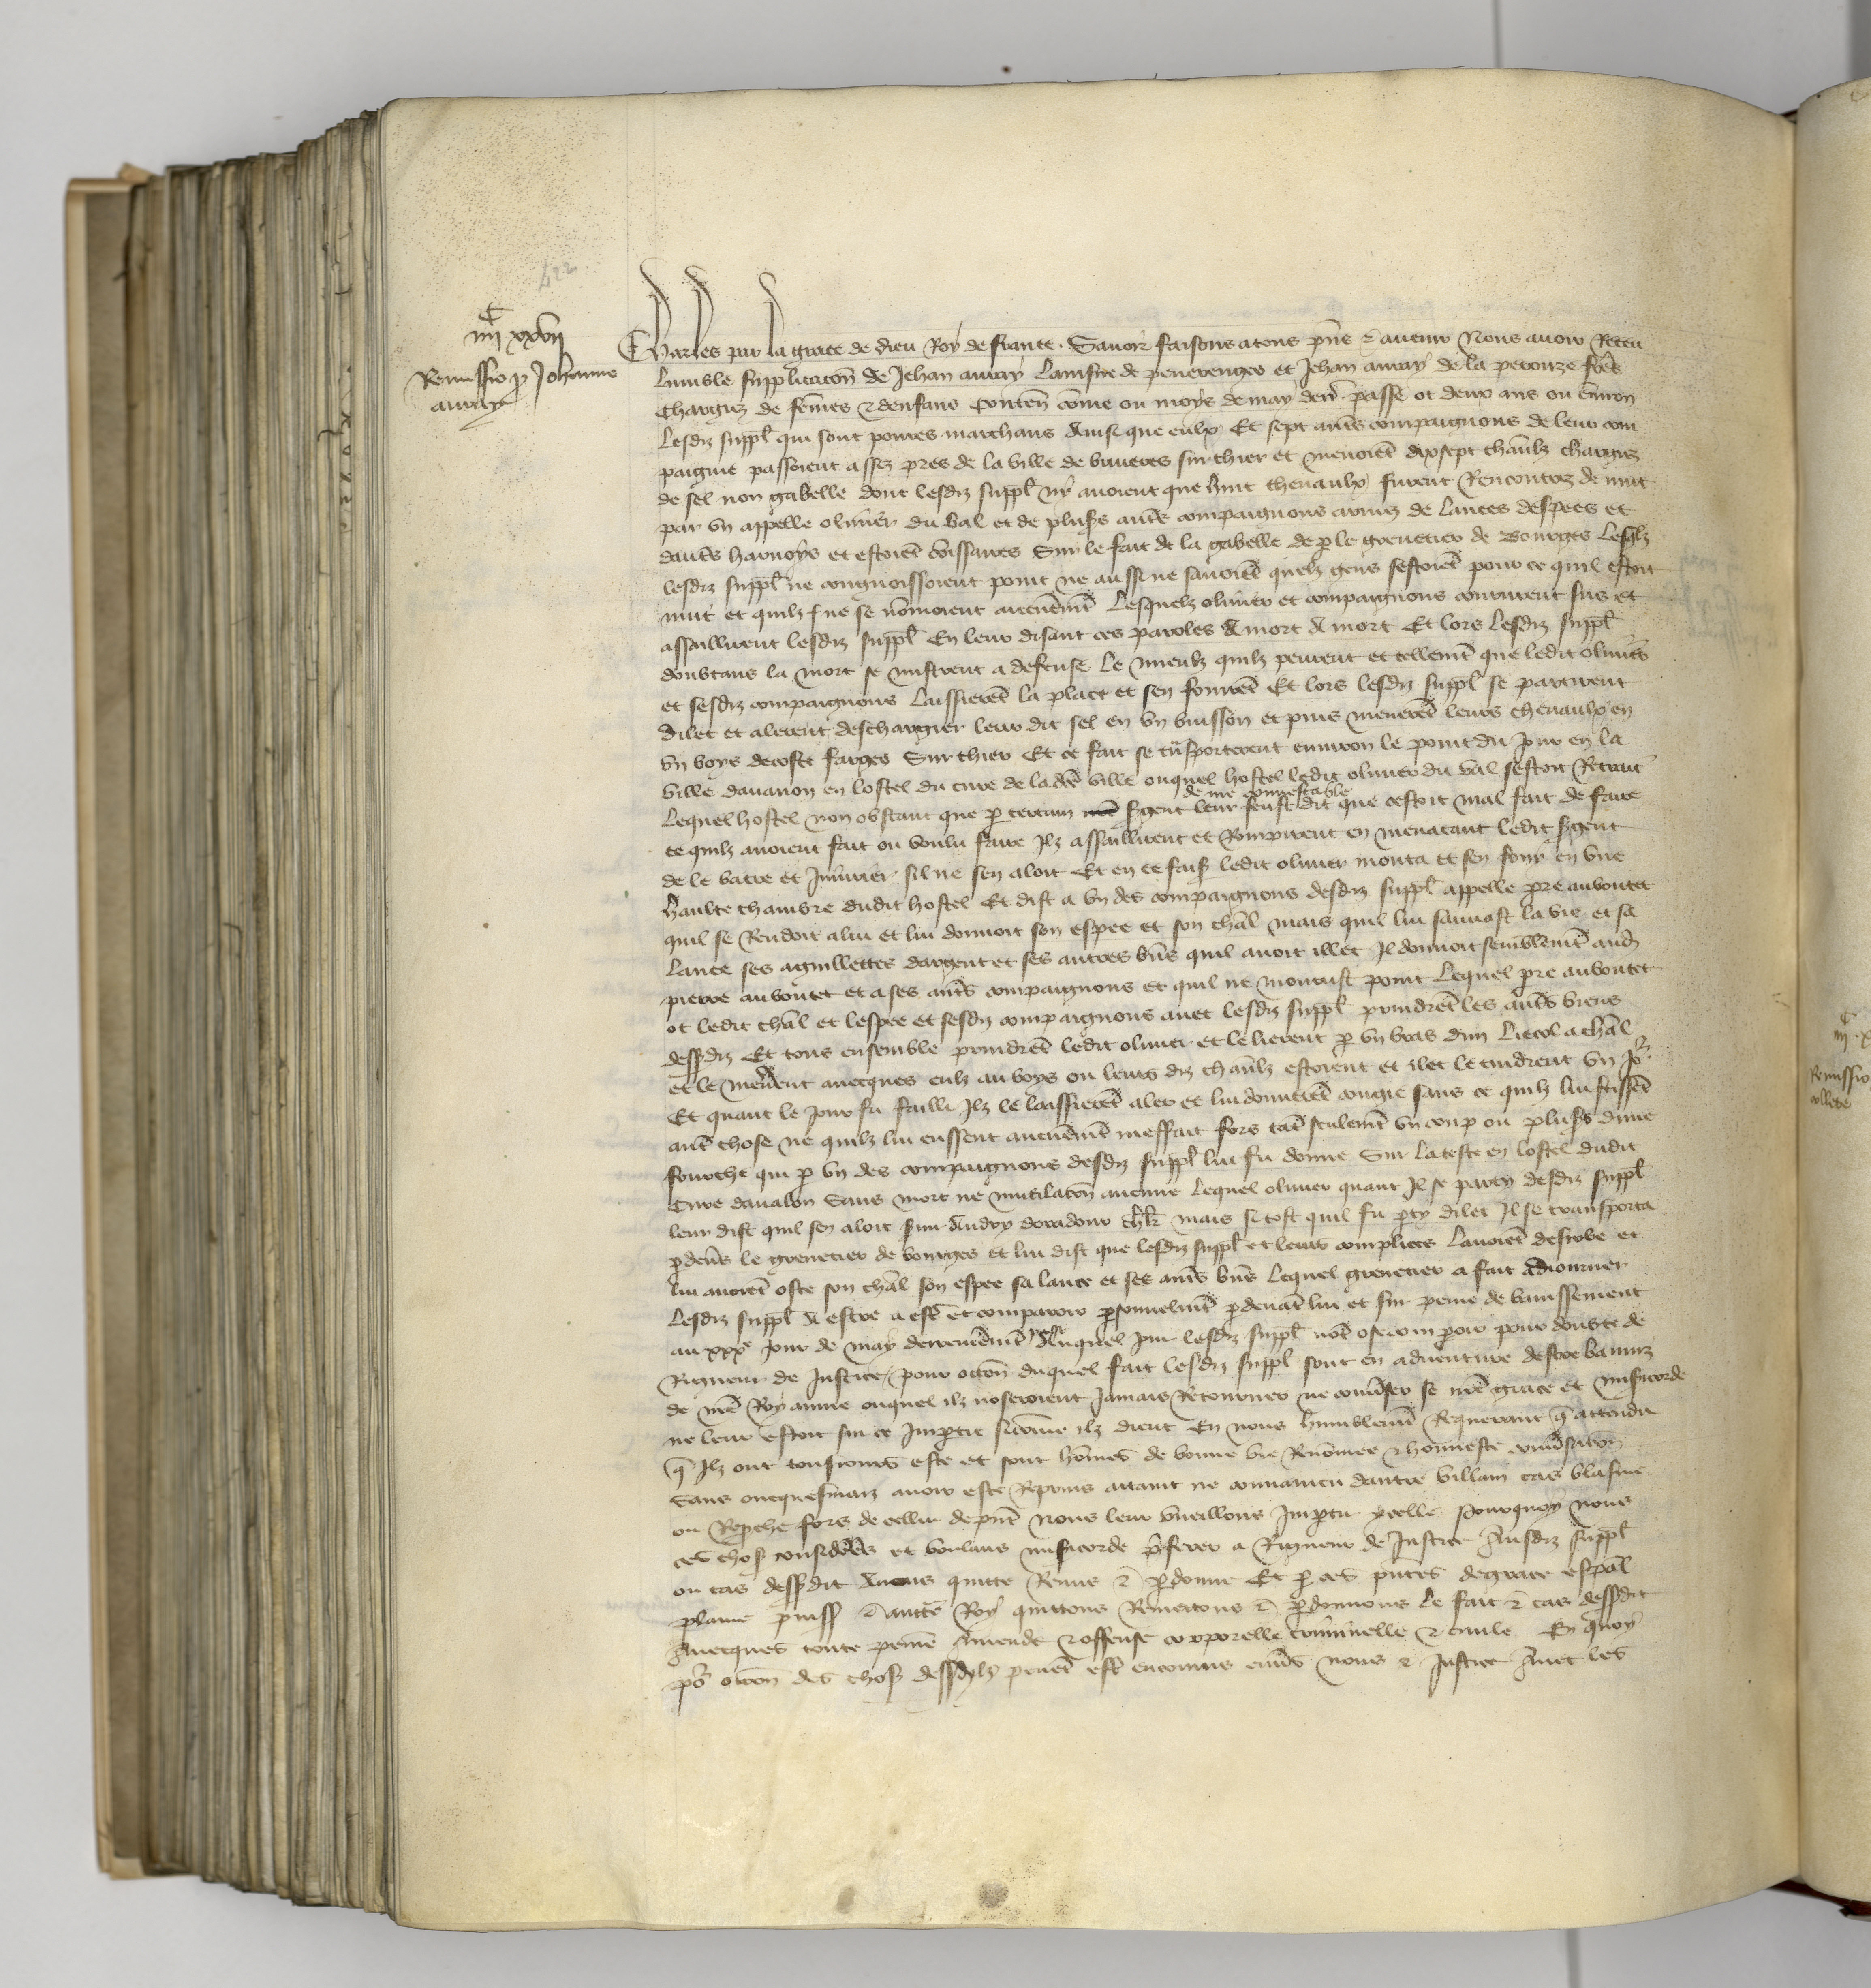 422
iiiic xxvii
Remissio p Johanne
auvray
Charles par la grace de dieu Roy de france. Savoir faisons a tous pns & avenir Nous avoir Receu
lumble supplicacon de Jehan auvray lainsne de penevenges et Jehan auvray de la perouze freres
chargiez de femes & denfans contenn come ou moys de may derr. passe ot deux ans ou environ
lesdiz suppl qui sont povres marchans Ainsi que eulx Et sept autres compaignons de leur com
paignie passoient assez pres de la ville de bruieres sur chier et menoient dixsept chevaulx chargiez
de sel non gabelle dont lesdiz suppl ny avoient que huit chevaulx furent Rencontrez de nuit
par un appelle olivier du val et de plus autres compaignons armez de lances despees et
dautres harnoys et estoient commissaires Sur le fait de la gabelle de p le grenetier de Bourges Lesqlz
lesdiz suppl ne congnoissoient point ne aussi ne savoient quelz gens sestoient pour ce quil estoit
nuit et quilz ne se nomoient aucunemt Lesquelz olivier et compaignons coururent sus et
assaillirent lesdiz suppl En leur disant ces paroles A mort A mort Et lors lesdiz suppl
doubtans la mort se mistrent a defense le mieulx quilz peurent et tellemt que ledit olivier
et sesdiz compaignons laissierent la place et sen fouirent Et lors lesdiz suppl se partirent
dilec et alerent deschargier leur dit sel en un buisson et puis menerent leurs chevaulx en
un boys decoste farges Sur chier Et ce fait se transporterent environ le point du jour en la
ville davanon en lostel du cure de ladte ville ouquel hostel ledit olivier du val sestoit Retrait
Lequel hostel non obstant que p certain sgent de nre connestable leur feust dit que cestoit mal fait de faire
ce quilz avoient fait ou voulu faire Ilz assaillirent et Rompirent en menacant ledit sgent
de le batre et Injurier sil ne sen aloit Et en ce fais ledit olivier monta et sen fouy en une
haulte chambre dudit hostel Et dist a un des compaignons desdiz suppl appelle pre auboutet
quil se Rendoit a lui et lui donnoit son espee et son chal mais quil lui sauvast la vie et sa
lance ses aguillettes dargent et ses autres bns quil avoit illec Il donnoit semblemt aud
pierre auboutet et a ses autres compaignons et quil ne mourust point Lequel pre auboutet
ot ledit chal et lespee et sesdiz compaignons avec lesdiz suppl prindrent les autres biens
dessdiz Et tous ensemble prindrent ledit olivier et le lierent p un bras dun licol a chal
et le menerent avecques eulz au boys ou leurs diz chevaulx estoient et ilec le tindrent un jor
Et quant le jour fu failli Ilz le laissierent aler et lui donnerent congie sans ce quilz lui feissent
autre chose ne quilz lui eussent aucunemt meffait fors tant seulemt un coup ou plus dune
fourche qui p un des compaignons desdiz suppl lui fu donne Sur la teste en lostel dudit
Cure davalon Sans mort ne mutilacon aucune Lequel olivier quant Il se party desdiz suppl
leur dist quil sen aloit sur Andry doradour chlr mais si tost quil fu pty dilec Il se transporta
p devers le grenetier de bourges et lui dist que lesdiz suppl et leurs complices lavoient desrobe et
lui avoient oste son chal son espee sa lance et ses autres bns Lequel grenetier a fait adjourner
lesdiz suppl A estre a estre et comparoir psonnelmt p devant lui et sur peine de banissement
au xxxe jour de may derrenierement Auquel jour lesdiz suppl nont ose comparoir pour doubte de
Rigueur de Justice, pour occon duquel fait lesdiz suppl sont en adventure destre baniz
de nre Royaume ouquel ilz noseroient jamais Retourner ne conviser se nre grace et misicorde
ne leur estoit sur ce Impartie sicome ilz dient En nous humblemt Requerant q attendu
q Ilz ont tousjours este et sont homes de bonne vie Renomee & honneste convsacion
Sans oncquesmaiz avoir este Reprins attaint ne convaincu dautre villain cas blasme
ou Repche fors de cellui de pnt Nous leur vueillons Imptir ycelle Pourquoy nous
ces chos considerees et voulans misicorde pferer a Rigueur de Justice Ausdiz suppl
ou cas dessdit Avons quitte Remis & pdonne Et p ces pntes de grace espal
plaine puiss & autte Roy quittons Remettons & pdonnons le fait & cas dessdit
Avecques toute peine Amende & offense corporelle criminelle & civile En quoy
por occon des chos dessdictes pevent estre encouruz envers nous & justice Avec les